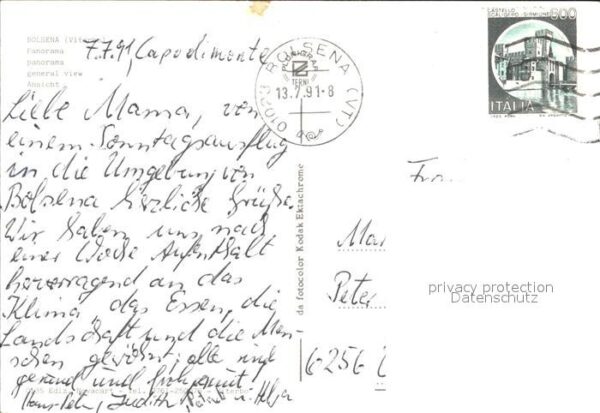 BOLSENA (Vit
Panorama
panorama
general view
Ansicht
7.7.91, Capodimonte
Liebe Mama, von
einem Sonntagsausflug
in die Umgebung von
Bolsena herzliche Grüße.
Wir haben uns nach
einer Woche Aufenthalt
hervorragend an das
Klima, das Essen, die
Landschaft und die Men-
schen gewöhnt; alle sind
gesund und frohgemut.
Judith
Helga
da fotocolor Kodak Ektachrome
01023 BOLSENA (VT)
TERNI
13.7.91-8
CASTELLO
SCALIGERO - SIRMIONE
600
ITALIA
Fra
Mar
Peter
6256
privacy protection
Datenschutz